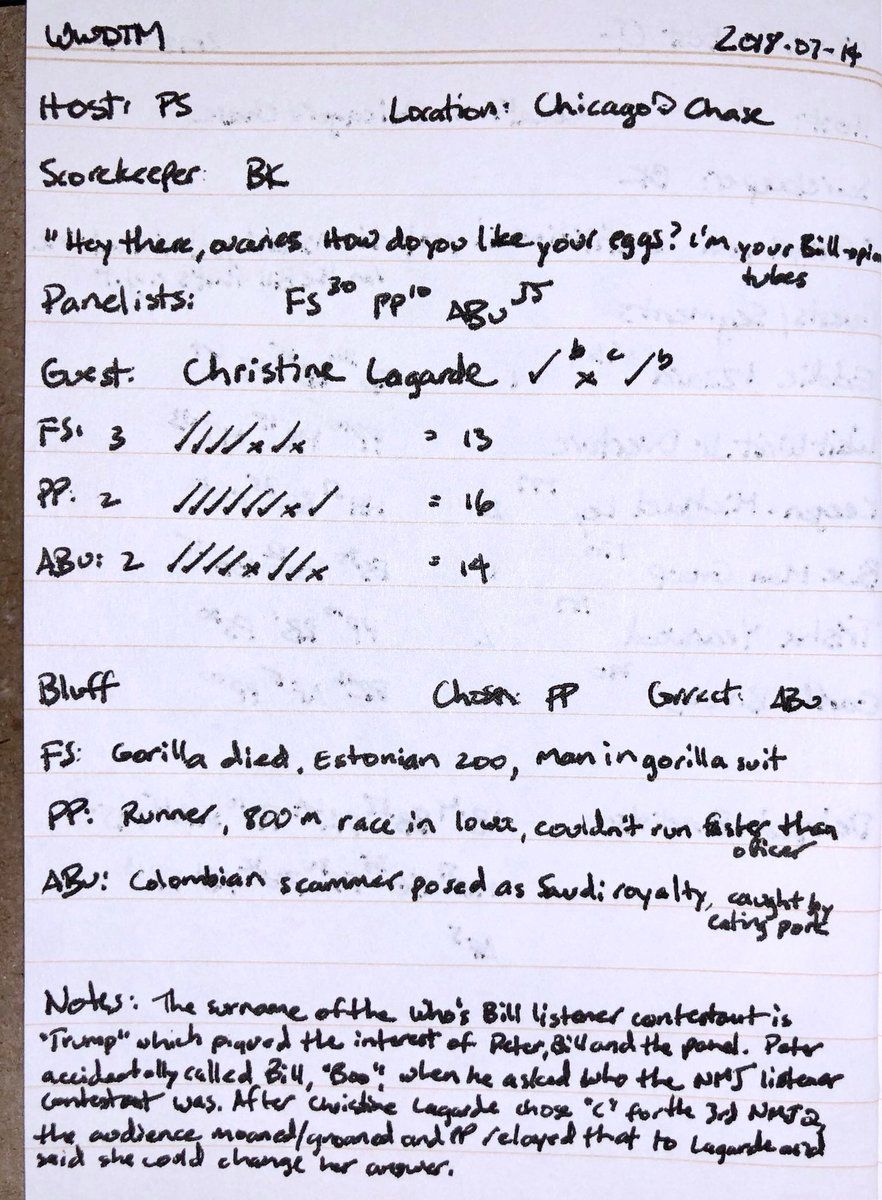 WWDTM 2018-07-14
Host: PS Location: Chicago Chase
Scorekeeper: BK
"Hey there, ovaries. How do you like your eggs? I'm your Bill-opian
tubes
Panelists: FS 30 PP 10 ABU 55
Guest: Christine Lagarde ✓ b x c / b
FS: 3 ////x/x = 13
PP: 2 //////x/ = 16
ABU: 2 ////x//x = 14
Bluff Chosen: PP Correct: ABU
FS: Gorilla died, Estonian zoo, man in gorilla suit
PP: Runner, 800m race in lower, couldn't run faster than
officer
ABU: Colombian scammer posed as Saudi royalty, caught by
eating pork
Notes: The surname of the Who's Bill listener contestant is
"Trump" which piqued the interest of Peter, Bill and the panel. Peter
accidentally called Bill, "Boo", when he asked who the NMJ listener
contestant was. After Christine Lagarde chose "C" for the 3rd NMJ Q,
the audience moaned/groaned and PP relayed that to Lagarde and
said she could change her answer.